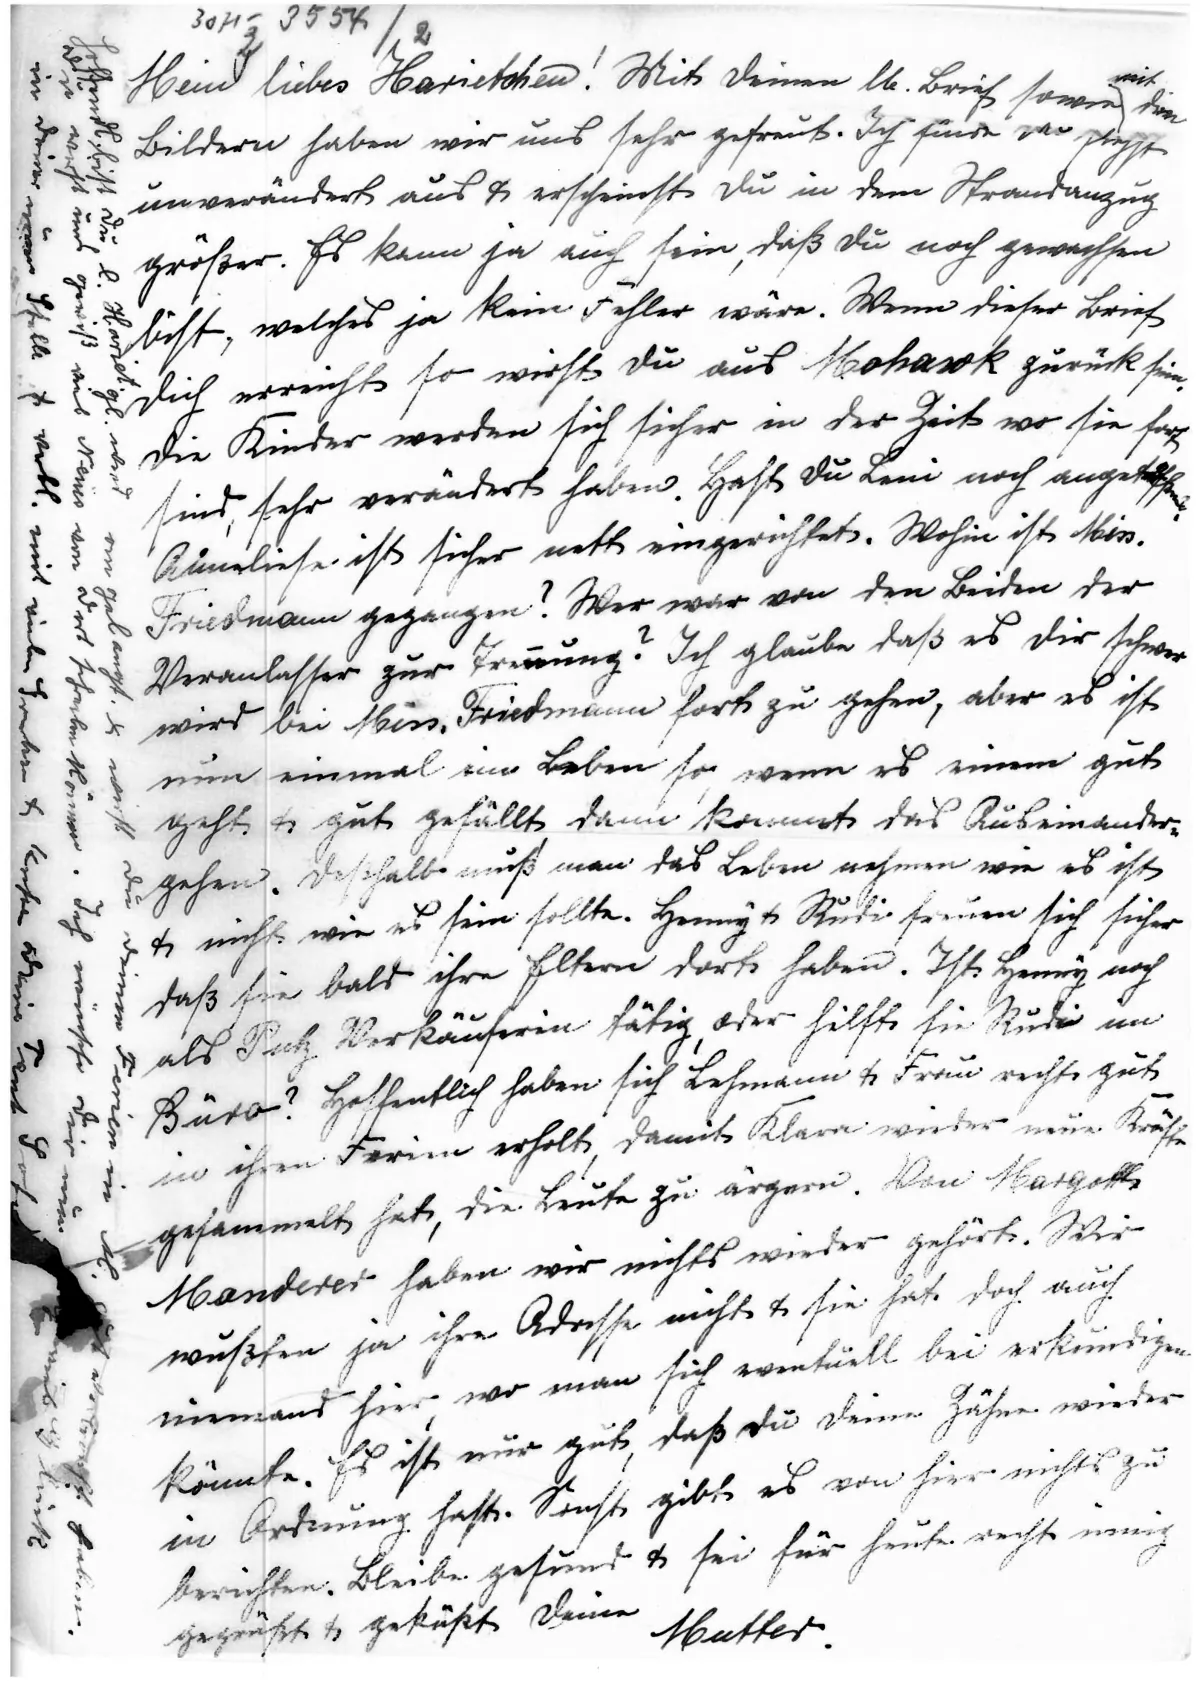 3554/2
Mein liebes Harietchen! Mit Deinen lb. Brief sowie mit den
Bildern haben wir uns sehr gefreut. Ich finde Du siehst
unverändert aus & erscheinst Du in dem Strandanzug
größer. Es kann ja auch sein, daß Du noch gewachsen
bist, welches ja kein Fehler wäre. Wenn dieser Brief
Dich erreicht so wirst Du aus Mohawk zurück sein.
Die Kinder werden sich sicher in der Zeit wo sie fort
sind, sehr verändert haben. Hast Du Leni noch angetroffen.
Anneliese ist sicher nett eingerichtet. Wohin ist Miss.
Friedmann gegangen? Wer war von den Beiden der
Veranlasser zur Trennung? Ich glaube daß es Dir schwer
wird bei Miss. Friedmann fort zu gehen, aber es ist
nun einmal im Leben so, wenn es einem gut
geht & gut gefällt, dann kommt das Auseinander=
gehen. Deshalb muß man das Leben nehmen wie es ist
& nicht wie es sein sollte. Henny & Rudi freuen sich sicher
daß sie bald ihre Eltern dort haben. Ist Henny noch
als Putz Verkäuferin tätig, oder hilft sie Rudi im
Büro? Hoffentlich haben sich Lehmann & Frau recht gut
in ihren Ferien erholt, damit Klara wieder neue Kräfte
gesammelt hat, die Leute zu ärgern. Von Margott
Manderer haben wir nichts wieder gehört. Wir
wußten ja ihre Adresse nicht & sie hat doch auch
niemand hier, wo man sich eventuell bei erkundigen
könnte. Es ist nur gut, daß Du Deine Zähne wieder
in Ordnung hast. Sonst gibt es von hier nichts zu
berichten. Bleibe gesund & sei für heute recht innig
gegrüßt & geküßt Deine
Mutter.
Hoffentl. bist Du l. Hariet gl. angelangt & wirst Du Deine Ferien in M. gut verbracht haben.
Du wirst uns gewiß viel Neues von dort schreiben können. Ich wünsche Dir nun
in Deiner neuen Stelle & verbl. mit vielen Grüßen & Küssen Deine Tant